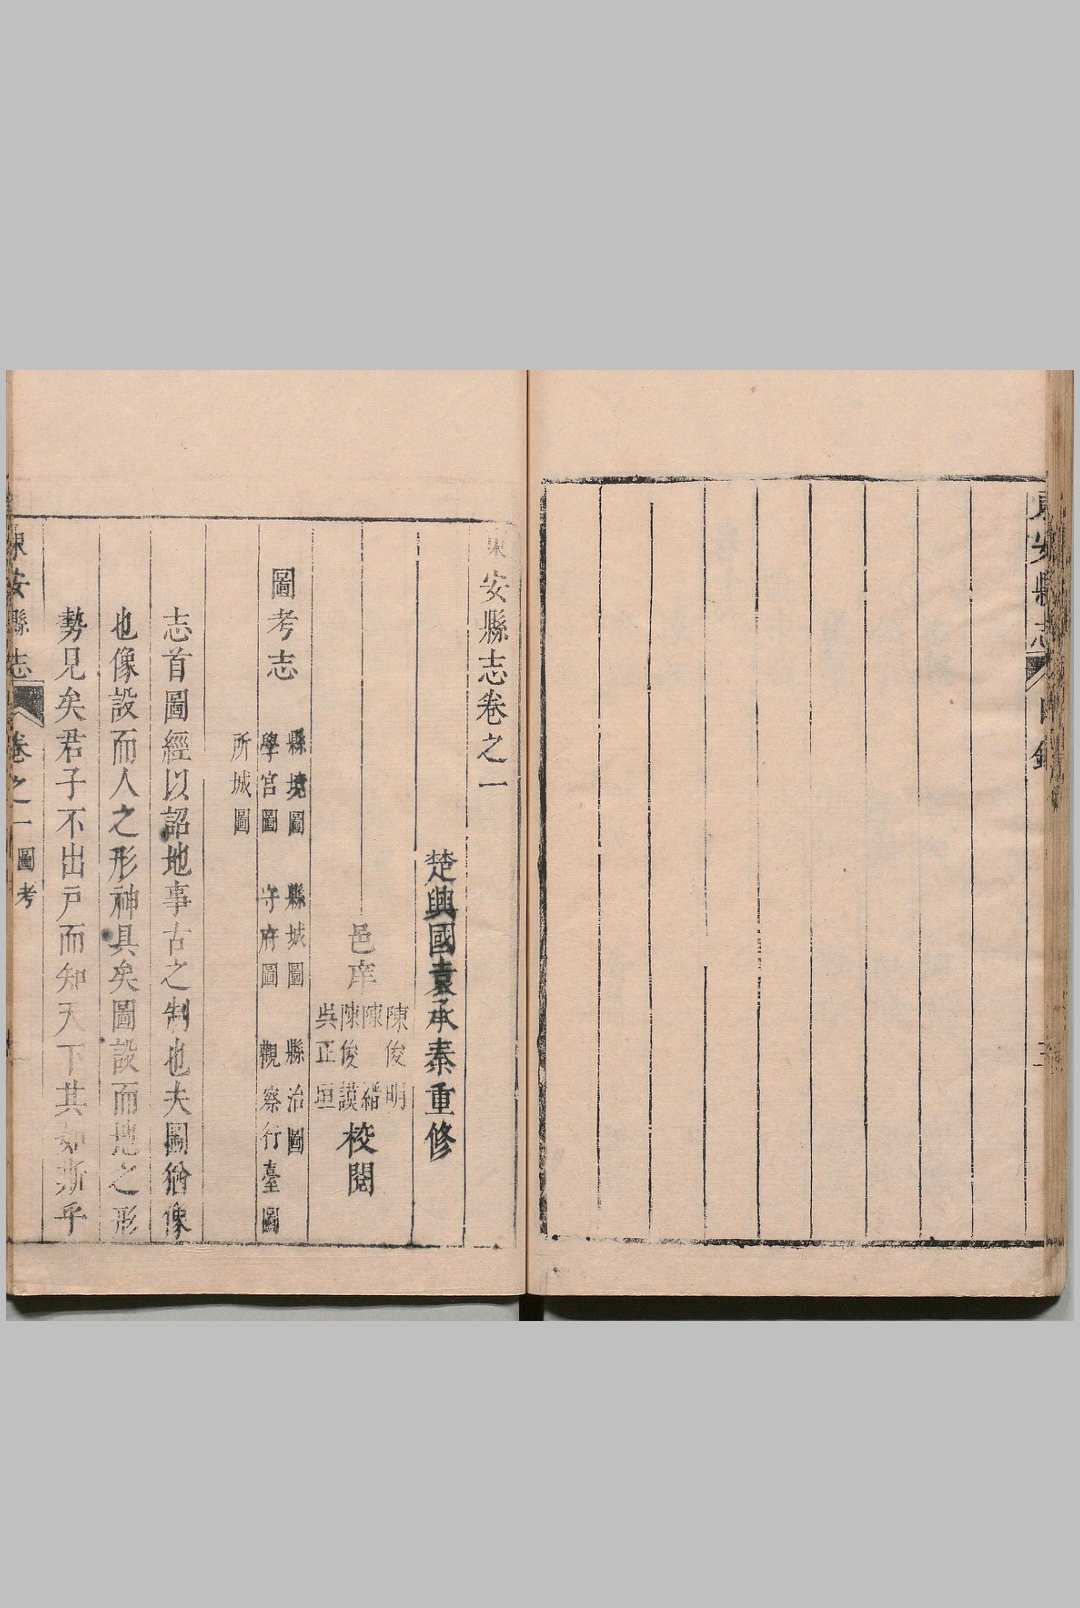 東安縣志 目錄
東安縣志卷之一
楚興國袁承泰重修
邑庠
陳俊明
陳縉
陳俊謨
吳正垣
校閱
圖考志
縣境圖 縣城圖 縣治圖
學宮圖 守府圖 觀察行臺圖
所城圖
志首圖經以詔地事古之制也夫圖猶像
也像設而人之形神具矣圖設而地之形
勢見矣君子不出戶而知天下其如斯乎
東安縣志 卷之一 圖考